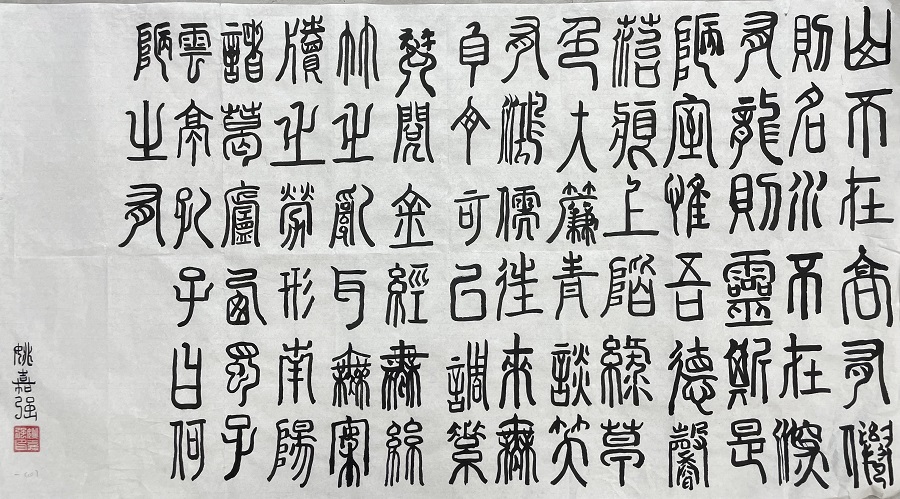 山不在高有僊
則名水不在深
有龍則靈斯是
陋室惟吾德馨
菭痕上階綠草
色入簾青談笑
有鴻儒往來無
白丁可以調素
琴閱金經無絲
竹之亂耳無案
牘之勞形南陽
諸葛廬西蜀子
雲亭孔子曰何
陋之有
姚嘉强